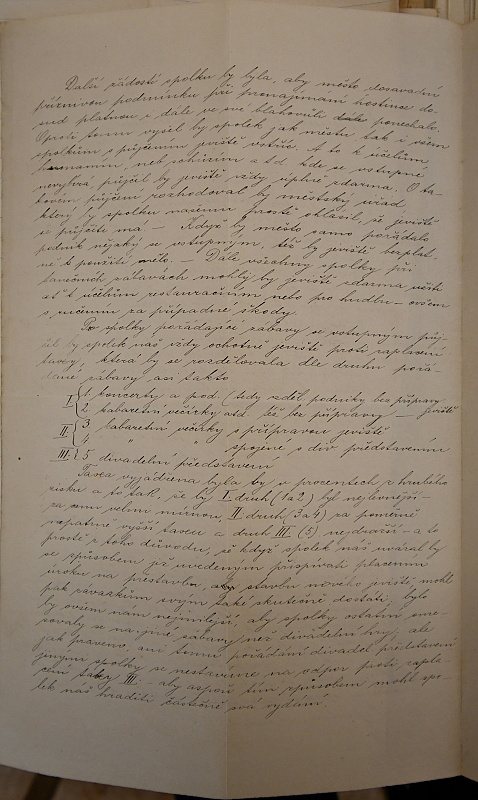 Další žádostí spolku by byla, aby město dosavadní
příznivou podmínku při pronajímání hostince do-
sud platnou i dále ve své blahovůli ponechalo.
Oproti tomu vyšel by spolek jak městu tak i všem
spolkům s půjčením jeviště vstříc. A to k účelům
neb schůzím atd. kde se vstupné
nevybírá půjčil by jeviště vždy úplně zdarma. O ta-
kovém půjčení rozhodoval by městský úřad
který by spolku našemu prostě ohlásil, že jeviště
se půjčiti má. — Když by město samo pořádalo
podnik nějaký se vstupným, též by jeviště bezplat-
ně k použití mělo. — Dále všechny spolky při
tanečních zábavách mohly by jeviště zdarma
ať k účelům restauračním nebo pro hudbu — ovšem
s ručením za případné škody.
Pro spolky pořádající zábavy se vstupným půj-
čil by spolek náš vždy ochotně jeviště proti zaplacení
taxy, která by se rozdělovala dle druhu pořá-
dané zábavy asi takto
I. 1 koncerty a pod. (tedy vzděl. podniky bez přípravy
2 kabaretní večírky atd. též bez přípravy — jeviště
II. 3 kabaretní večírky s přípravou jeviště
4 " spojené s div. představením
III. 5 divadelní představení
Taxa vyjádřena byla by v procentech z hrubého
zisku a to tak, že by I. druh (1 a 2) byl nejlevnější —
za onu velmi mírnou, II. druh (3 a 4) za poměrně
nepatrně vyšší taxu a druh III. (5) nejdražší — a to
prostě z toho důvodu, že když spolek náš uvázal by
se způsobem již uvedeným přispívati placením
úroku na přestavbu, stavbu nového jeviště, mohl
pak závazkům svým také skutečně dostáti, bylo
by ovšem nám nejmilejší, aby spolky ostatní ome-
zovaly se na jiné zábavy než divadelní hry, ale
jak praveno, ani tomu pořádání divadel. představení
jinými spolky se nestavíme na odpor proti zapla-
cení taxy III. — aby aspoň tím způsobem mohl spo-
lek náš hraditi částečně svá vydání.